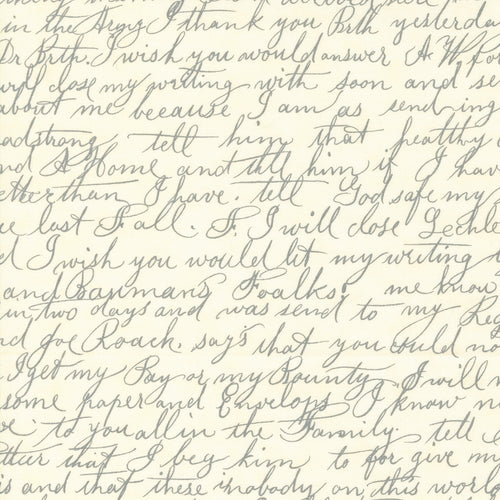 in the Army I thank you Brth yesterda
Dr Brth. I wish you would answer A. W. for
will close my writing with soon and se
about me because I am as sending
adstrong tell him that pealthy
nd A Home and till him if I hav
etter than I have. tell God safe my
e last Fall. F. I will close Lechle
d I wish you would let my writing
and Baumans Foalks! me know
in two days and was send to my Reg
nd Joe Roach. says that you could no
I get my Pay or my Bounty I will
some paper and Envelops I know n
ve to you all in the Family. tell
etter that I bey him to for give m
is and that there is nobody on this worl